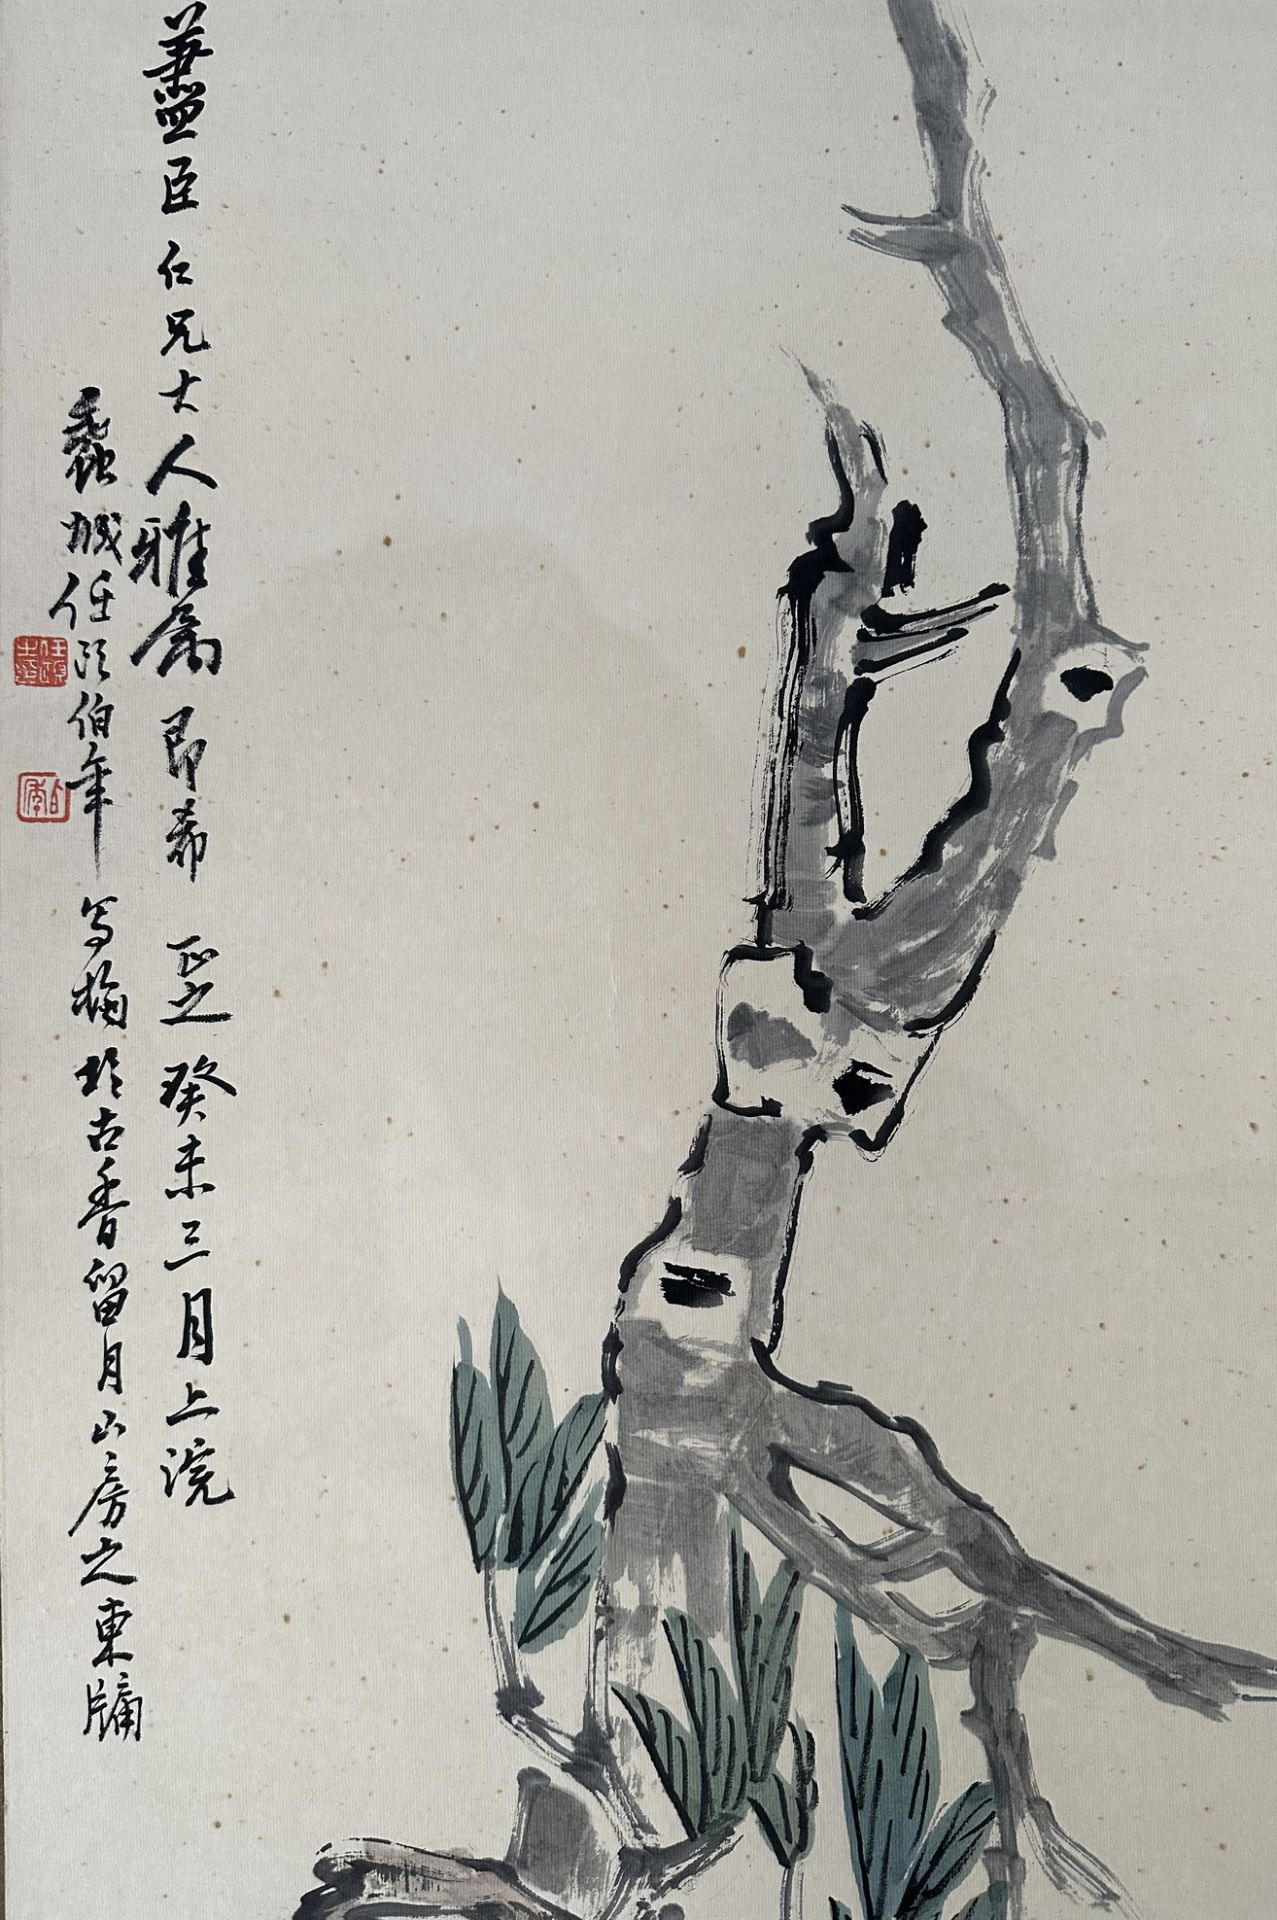 藎臣仁兄大人雅屬即希正之癸未三月上浣
蠡城任頤伯年寫梅於古香留月山房之東牖